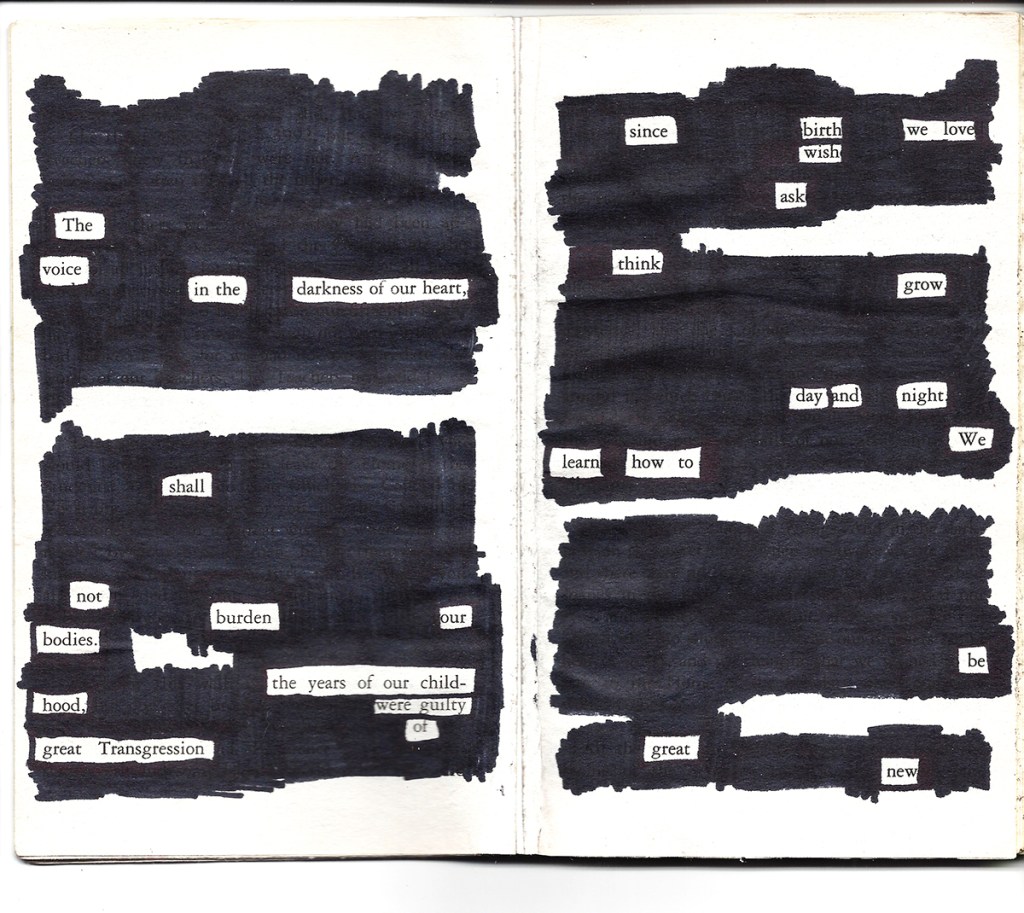 The
voice
in the darkness of our heart,
shall
not
burden our
bodies.
the years of our child-
hood, were guilty
of
great Transgression
since birth we love
wish
ask
think
grow
day and night
We
learn how to
be
great
new